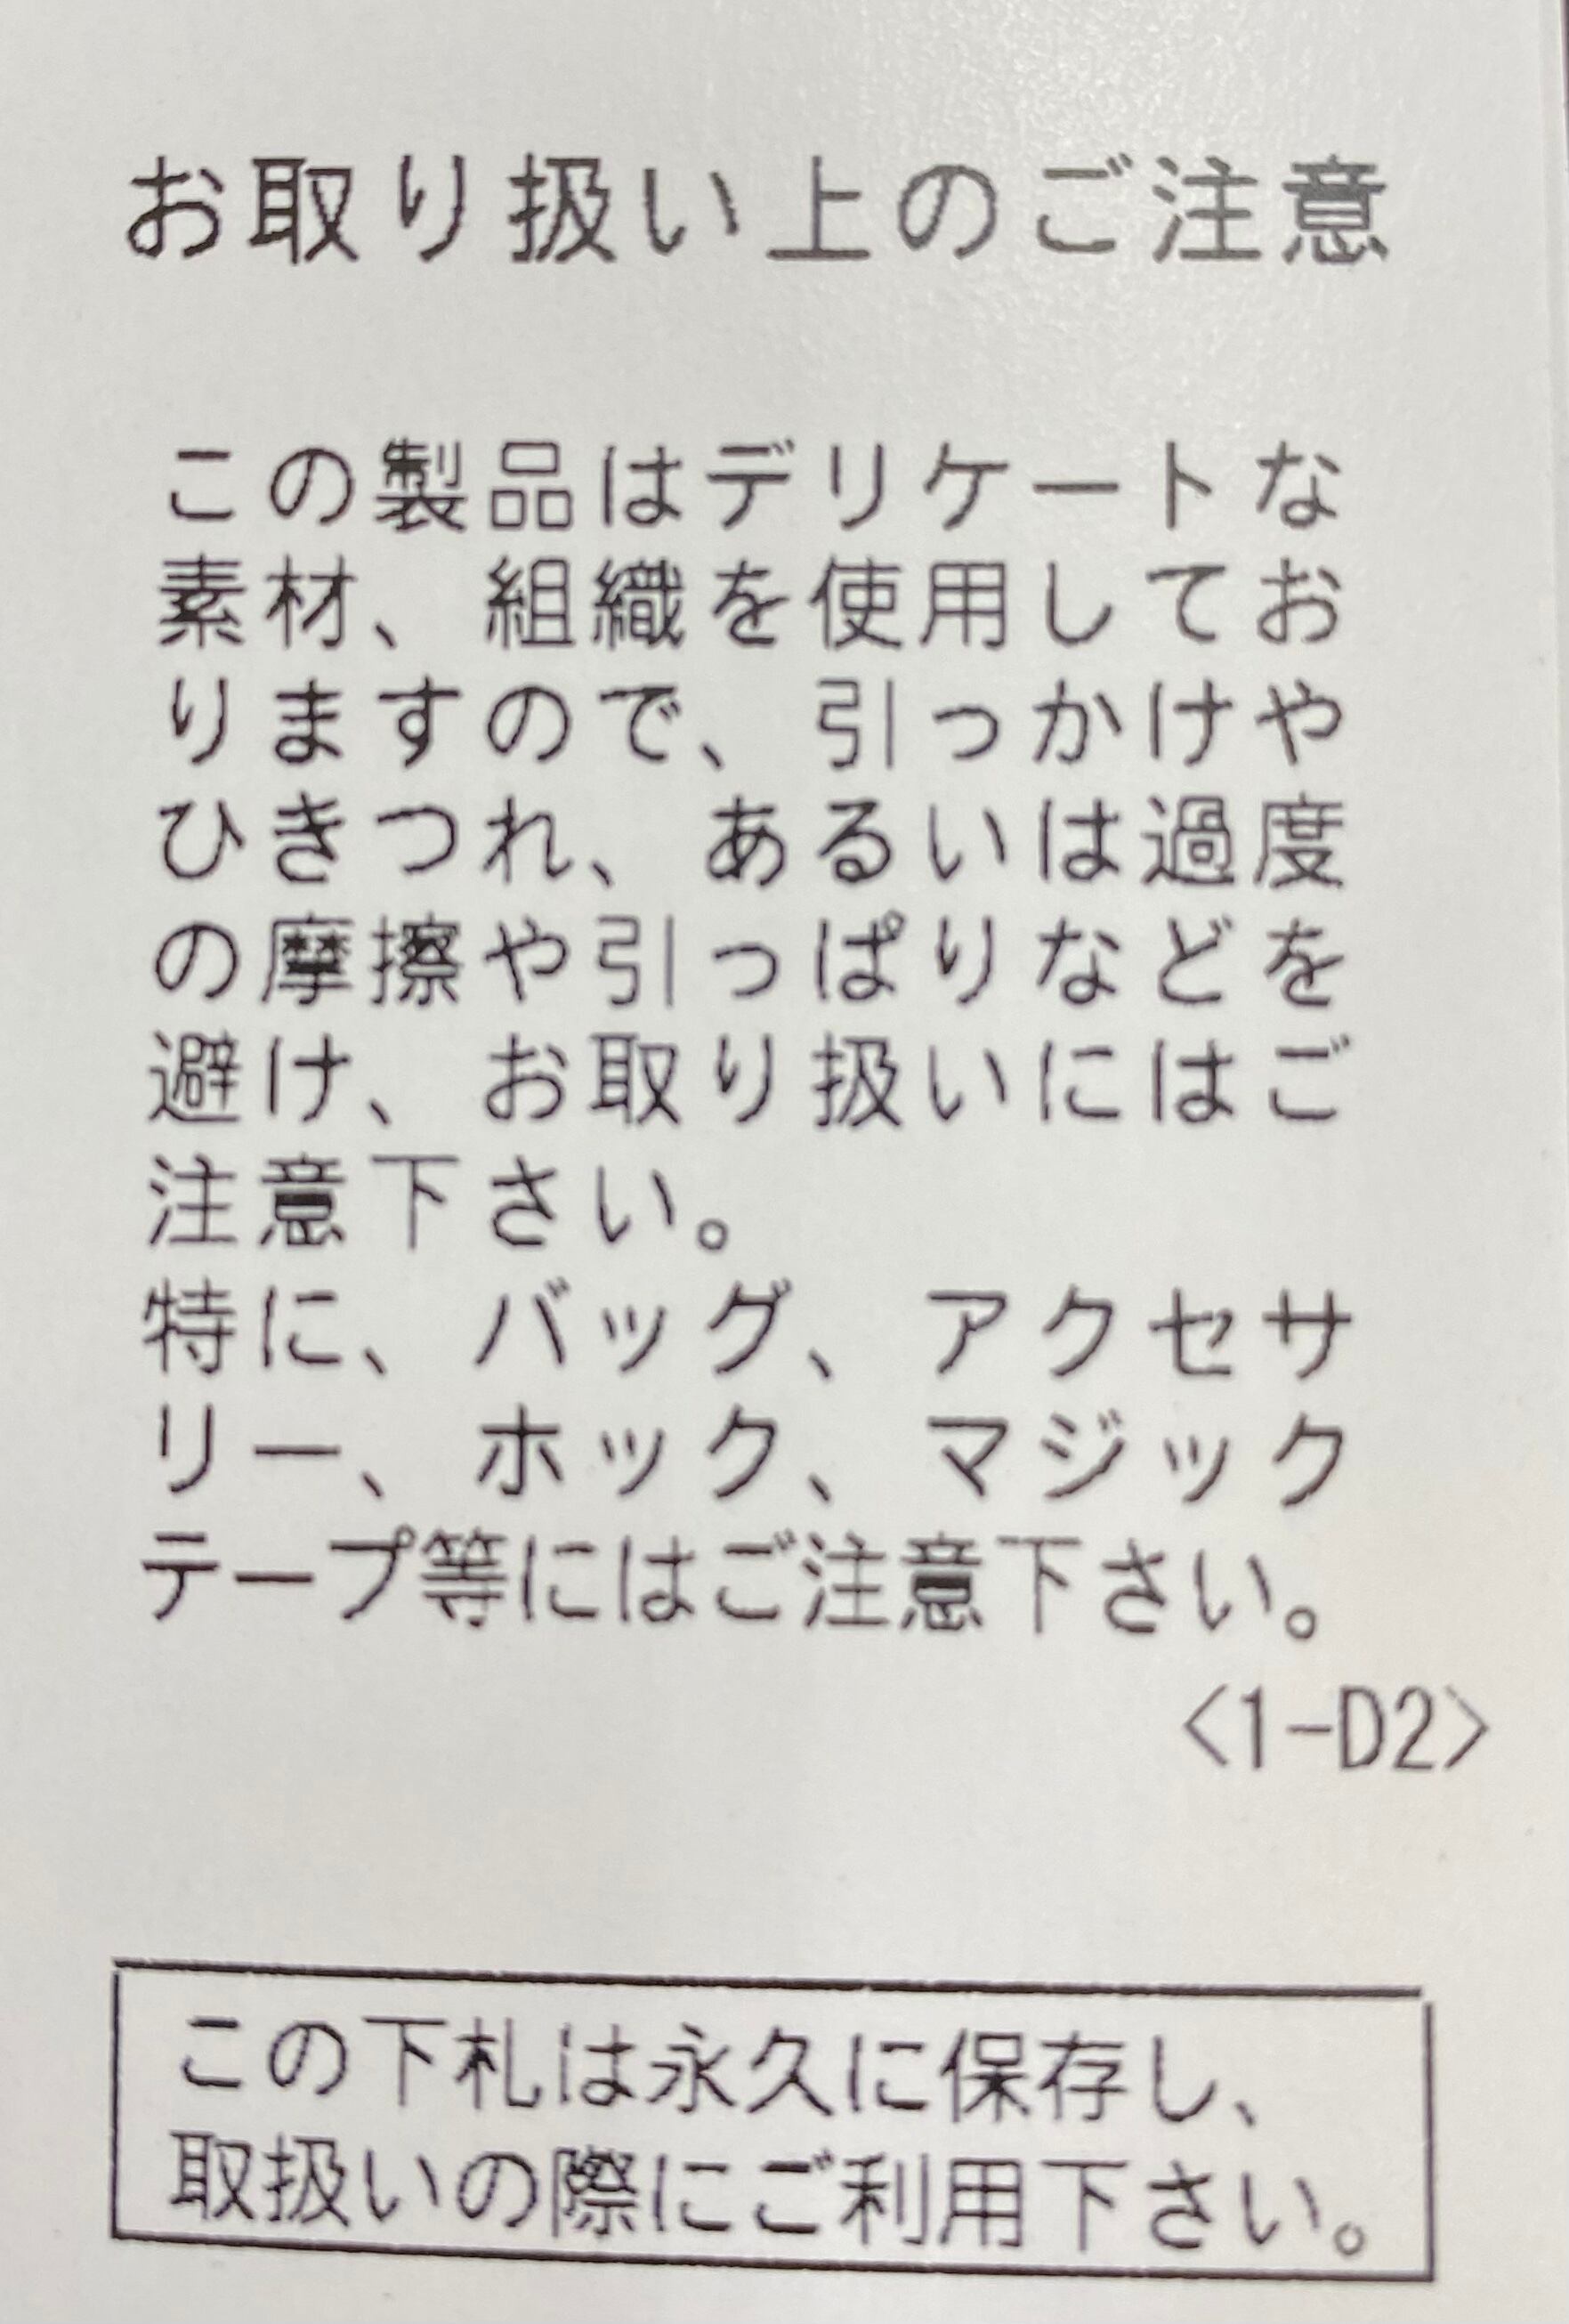 お取り扱い上のご注意
この製品はデリケートな
素材、組織を使用してお
りますので、引っかけや
ひきつれ、あるいは過度
の摩擦や引っぱりなどを
避け、お取り扱いにはご
注意下さい。
特に、バッグ、アクセサ
リー、ホック、マジック
テープ等にはご注意下さい。
<1-D2>
この下札は永久に保存し、
取扱いの際にご利用下さい。